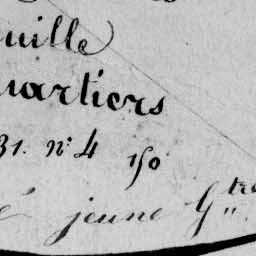 uille
uartiers
31. nº 4 150
é jeune G.tre